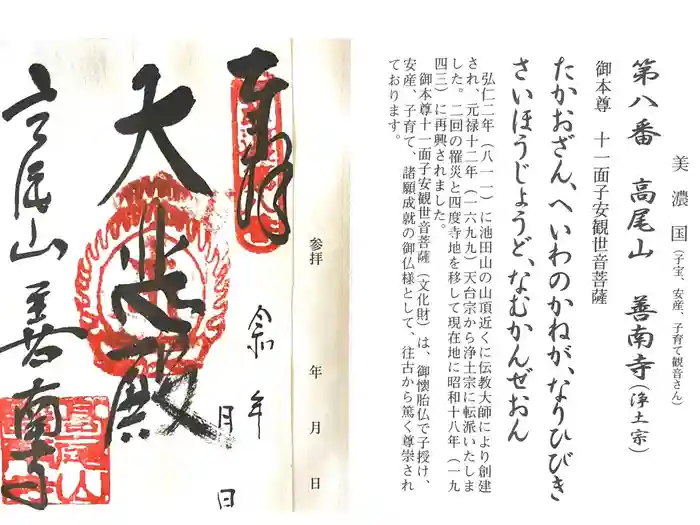 美濃国(子宝、安産、子育て観音さん)
第八番 高尾山 善南寺(浄土宗)
御本尊 十一面子安観世音菩薩
たかおざん、へいわのかねが、なりひびき
さいほうじょうど、なむかんぜおん
弘仁二年(八一一)に池田山の山頂近くに伝教大師により創建
され、元禄十二年(一六九九)天台宗から浄土宗に転派いたしま
した。二回の罹災と四度寺地を移して現在地に昭和十八年(一九
四三)に再興されました。
御本尊十一面子安観世音菩薩(文化財)は、御懐胎仏で子授け、
安産、子育て、諸願成就の御仏様として、往古から篤く尊崇され
ております。
参拝 年 月 日
令和 年 月 日
奉拝
大悲殿
高尾山 善南寺